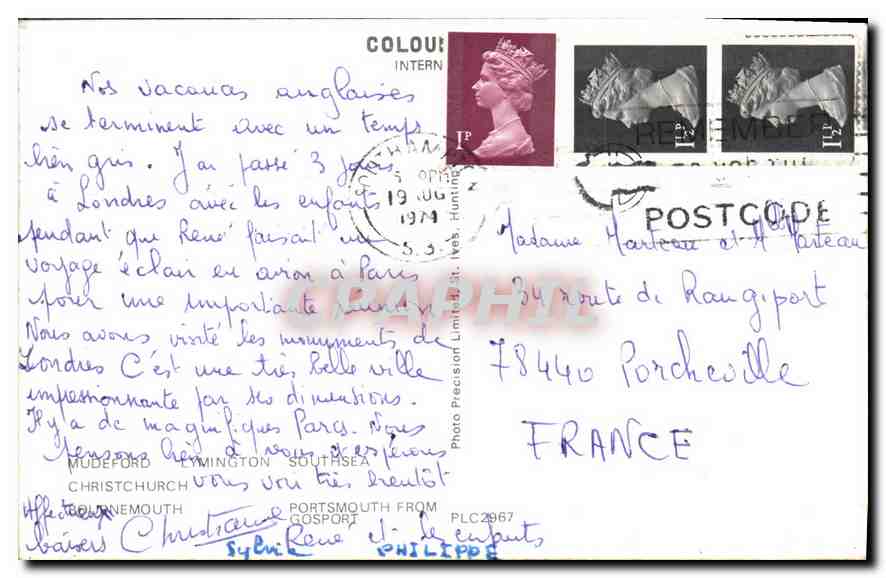 COLOU
INTERN
1P
1½P
1½P
19 AUG
1974
REMEMBER
POSTCODE
Nos vacances anglaises
se terminent avec un temps
bien gris. J'ai passé 3 jours
à Londres avec les enfants
pendant que René faisait un
voyage éclair en avion à Paris
pour une importante
Nous avons visité les monuments de
Londres C'est une très belle ville
impressionnante par ses dimensions.
Il y a de magnifiques Parcs. Nous
pensons bien à vous et espérons
vous voir très bientôt
Affectueux
baisers Christiane
René et les enfants
Sylvie PHILIPPE
Madame Marteau et Mr Marteau
34 route de Rangiport
78440 Porcheville
FRANCE
Photo Precision Limited, St. Ives, Hunting
MUDEFORD LYMINGTON SOUTHSEA
CHRISTCHURCH
BOURNEMOUTH PORTSMOUTH FROM
GOSPORT PLC2967
CPAPHIL